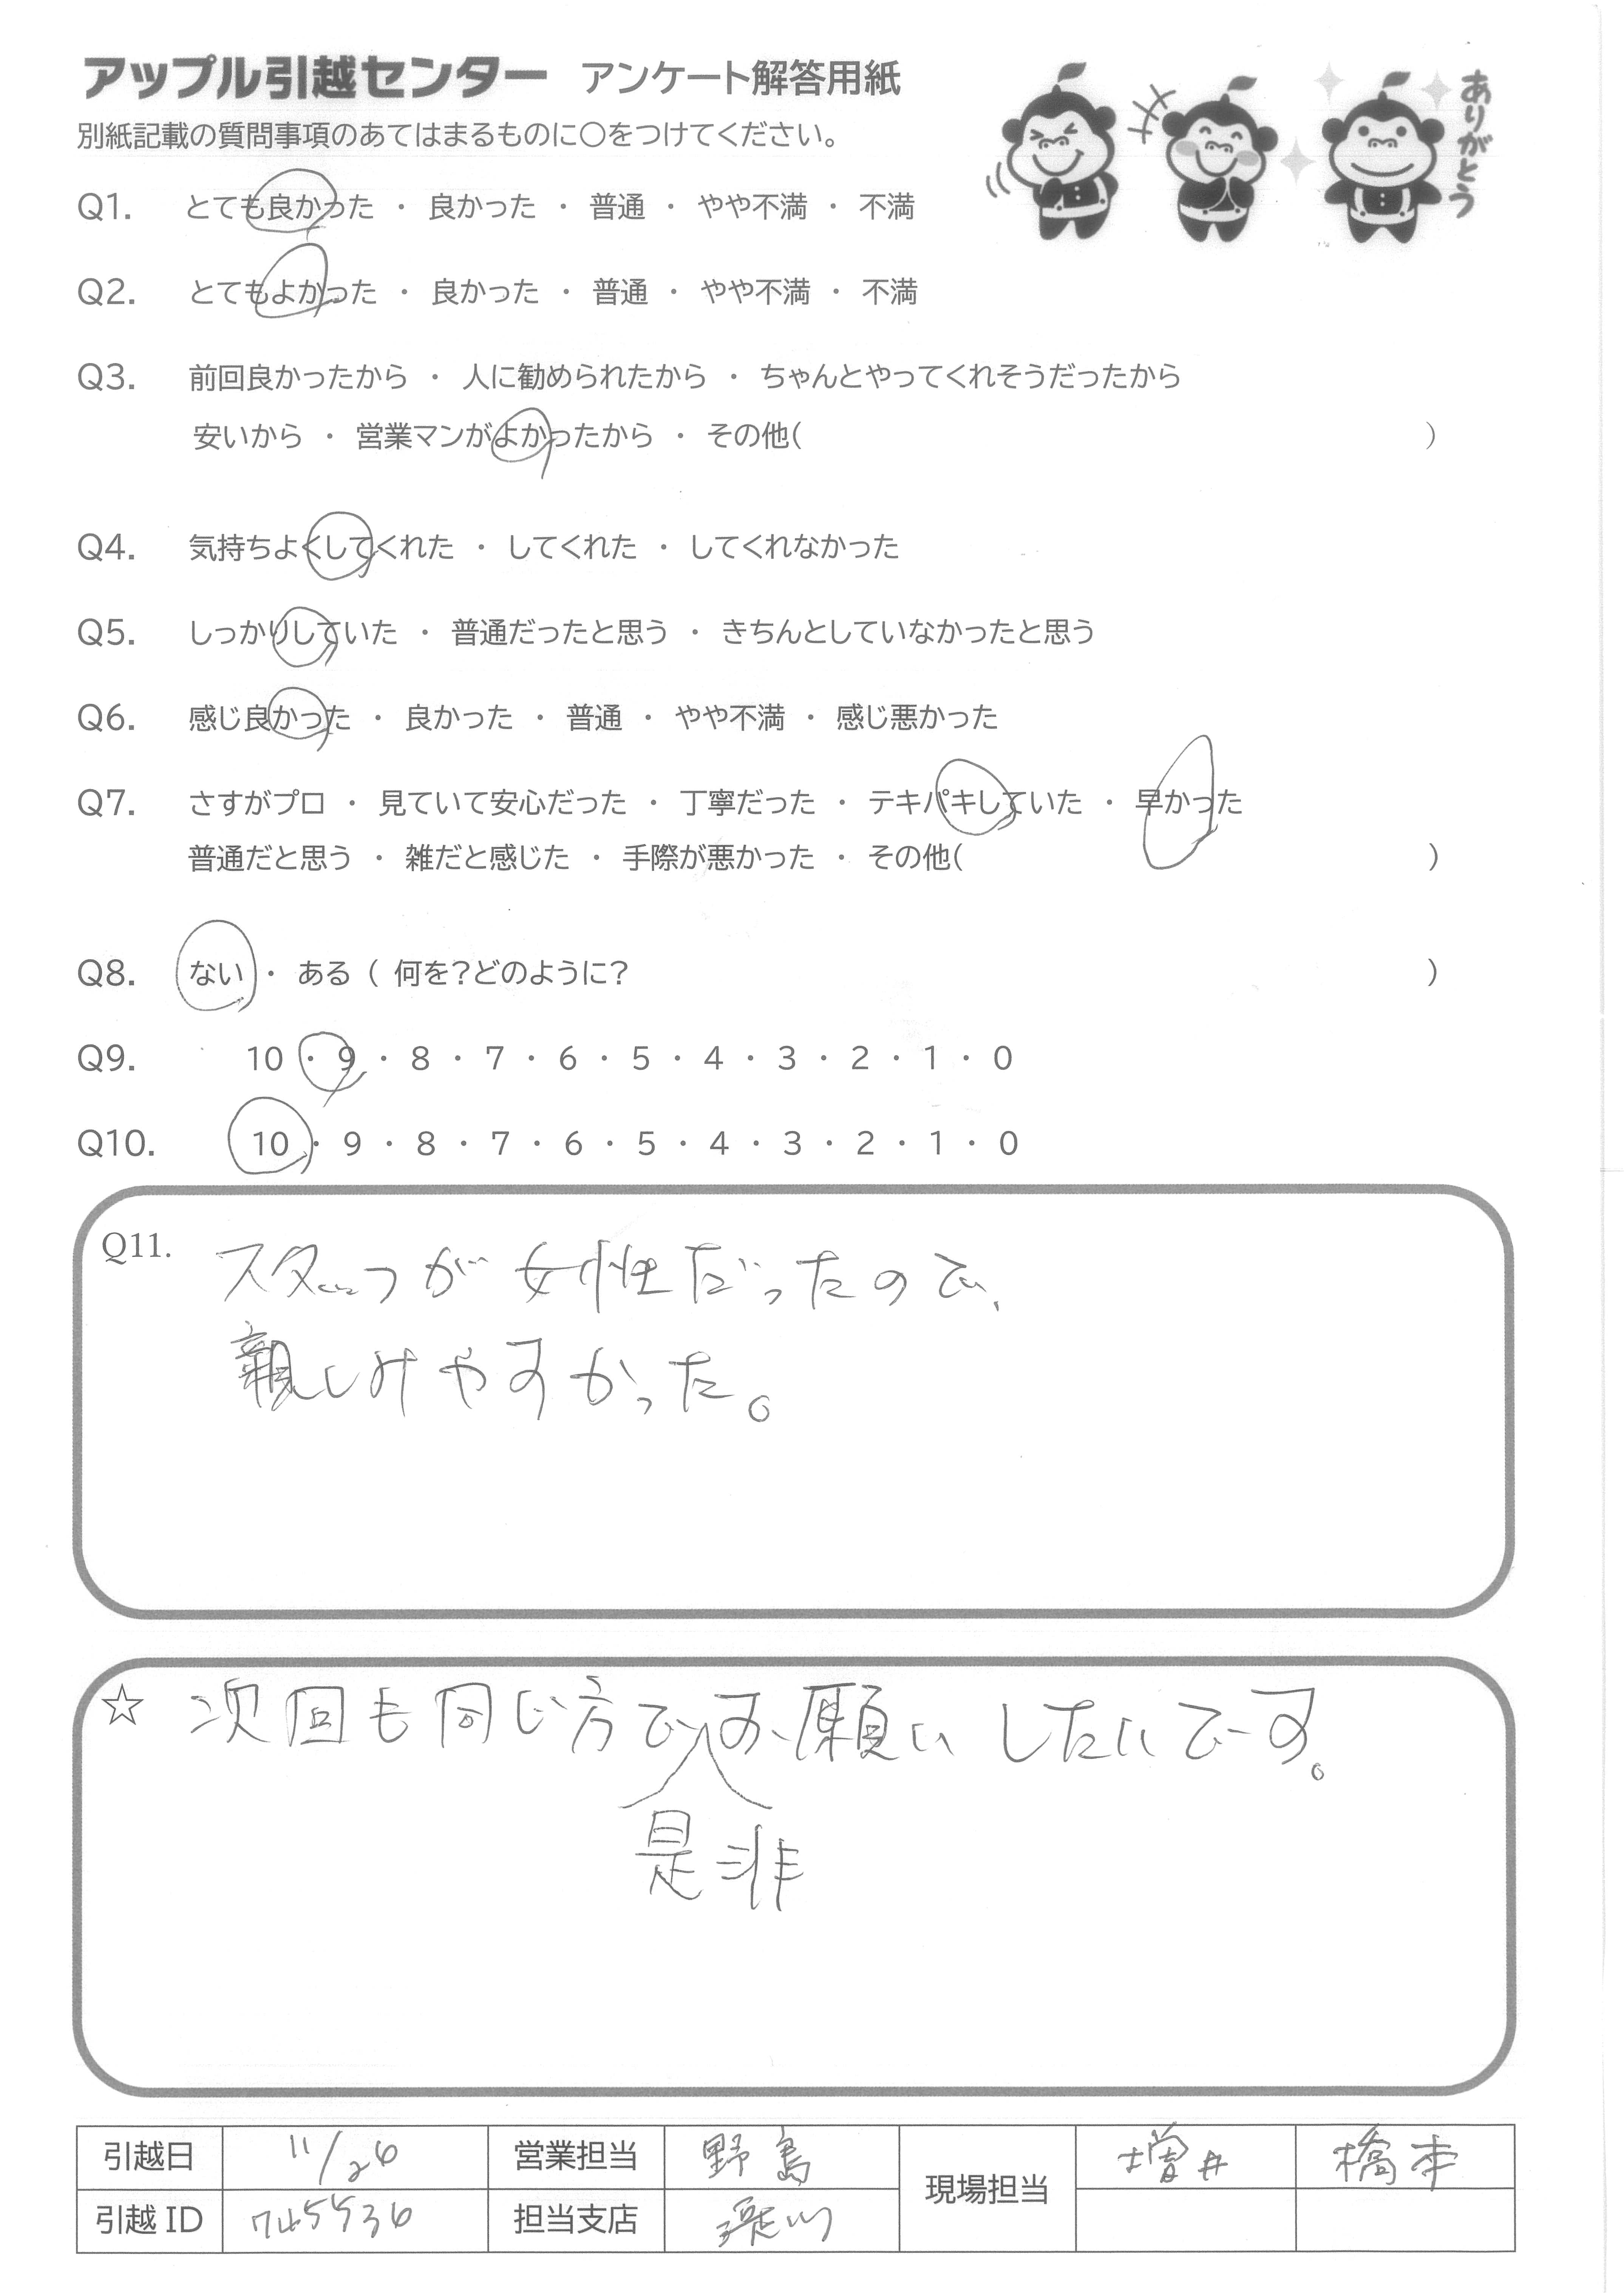 アップル引越センター アンケート解答用紙
別紙記載の質問事項のあてはまるものに○をつけてください。
ありがとう
Q1. とても良かった ・ 良かった ・ 普通 ・ やや不満 ・ 不満
Q2. とてもよかった ・ 良かった ・ 普通 ・ やや不満 ・ 不満
Q3. 前回良かったから ・ 人に勧められたから ・ ちゃんとやってくれそうだったから
安いから ・ 営業マンがよかったから ・ その他( )
Q4. 気持ちよくしてくれた ・ してくれた ・ してくれなかった
Q5. しっかりしていた ・ 普通だったと思う ・ きちんとしていなかったと思う
Q6. 感じ良かった ・ 良かった ・ 普通 ・ やや不満 ・ 感じ悪かった
Q7. さすがプロ ・ 見ていて安心だった ・ 丁寧だった ・ テキパキしていた ・ 早かった
普通だと思う ・ 雑だと感じた ・ 手際が悪かった ・ その他( )
Q8. ない ・ ある ( 何を?どのように? )
Q9. 10 ・ 9 ・ 8 ・ 7 ・ 6 ・ 5 ・ 4 ・ 3 ・ 2 ・ 1 ・ 0
Q10. 10 ・ 9 ・ 8 ・ 7 ・ 6 ・ 5 ・ 4 ・ 3 ・ 2 ・ 1 ・ 0
Q11. スタッフが女性だったので、
親しみやすかった。
☆ 次回も同じ方でお願いしたいです。
是非
引越日 11/26 営業担当 野島 現場担当 増井 橋本
引越ID 745536 担当支店